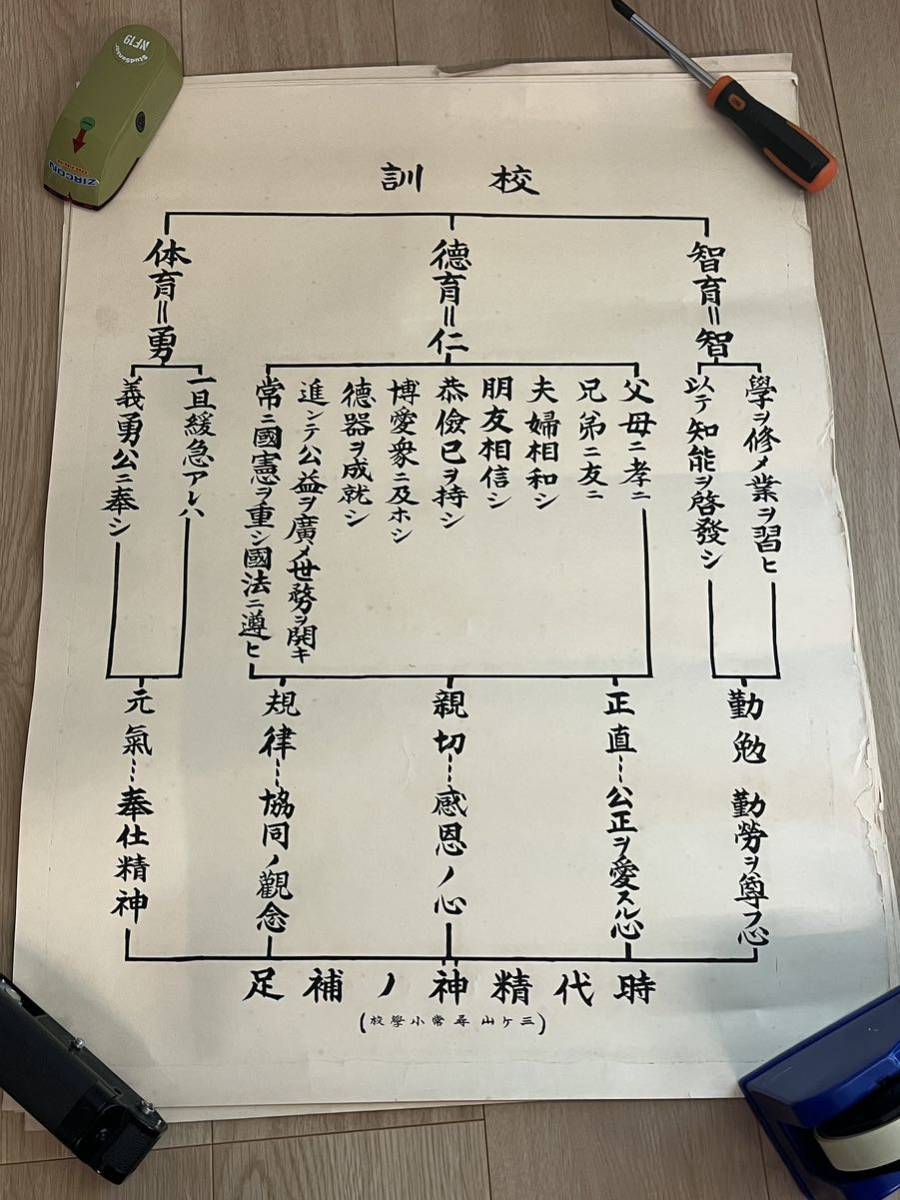 校訓
智育=智
學ヲ修メ業ヲ習ヒ
以テ知能ヲ啓發シ
勤勉
勤勞ヲ尊フ心
德育=仁
父母ニ孝ニ
兄弟ニ友ニ
夫婦相和シ
朋友相信シ
恭儉已ヲ持シ
博愛衆ニ及ホシ
德器ヲ成就シ
進ンテ公益ヲ廣メ世務ヲ開キ
常ニ國憲ヲ重シ國法ニ遵ヒ
正直…公正ヲ愛スル心
親切…感恩ノ心
規律…協同ノ觀念
体育=勇
一旦緩急アレハ
義勇公ニ奉シ
元氣…奉仕精神
時代精神ノ補足
(三ケ山尋常小學校)
StudSensor
NF19
ZIRCON